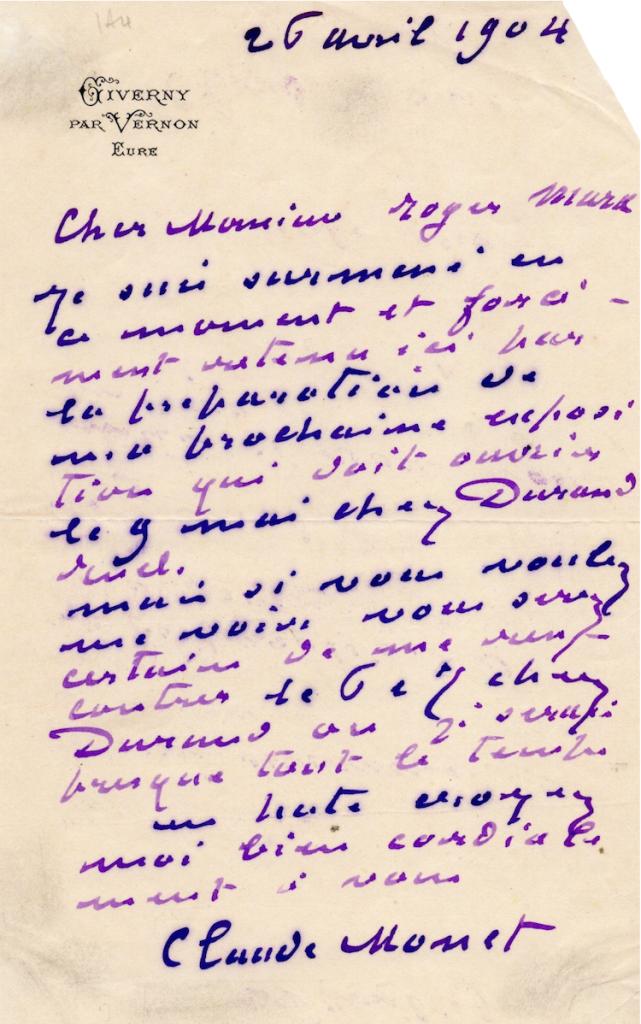 26 avril 1904
GIVERNY
PAR VERNON
EURE
Cher Monsieur Roger Marx
Je suis surmené en
ce moment et forcé-
ment retenu ici par
la préparation de
ma prochaine exposi
tion qui doit ouvrir
le 9 mai chez Durand
ruel.
mais si vous voulez
me voir, vous serez
certain de me ren-
contrer le 6 et 7 chez
Durand ou j'y serai
presque tout le temps
en hate croyez
moi bien cordiale
ment à vous
Claude Monet